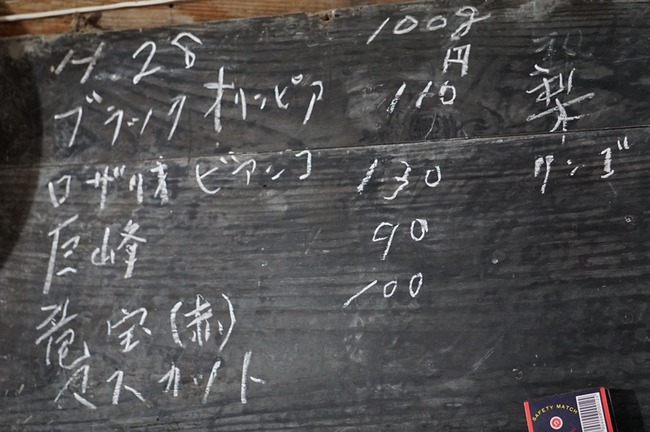 H 28
100g
円
ブラック オリンピア 110
ロザリオ ビアンコ 130
巨山峰 90
竜宝(赤) 100
スカット
梨
リンゴ
SAFETY MATCH